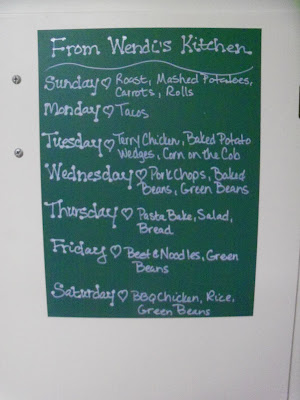 From Wendi's Kitchen
Sunday ♡ Roast, Mashed Potatoes,
Carrots, Rolls
Monday ♡ Tacos
Tuesday ♡ Terry Chicken, Baked Potato
Wedges, Corn on the Cob
Wednesday ♡ Pork Chops, Baked
Beans, Green Beans
Thursday ♡ Pasta Bake, Salad,
Bread
Friday ♡ Beef & Noodles, Green
Beans
Saturday ♡ BBQ Chicken, Rice,
Green Beans